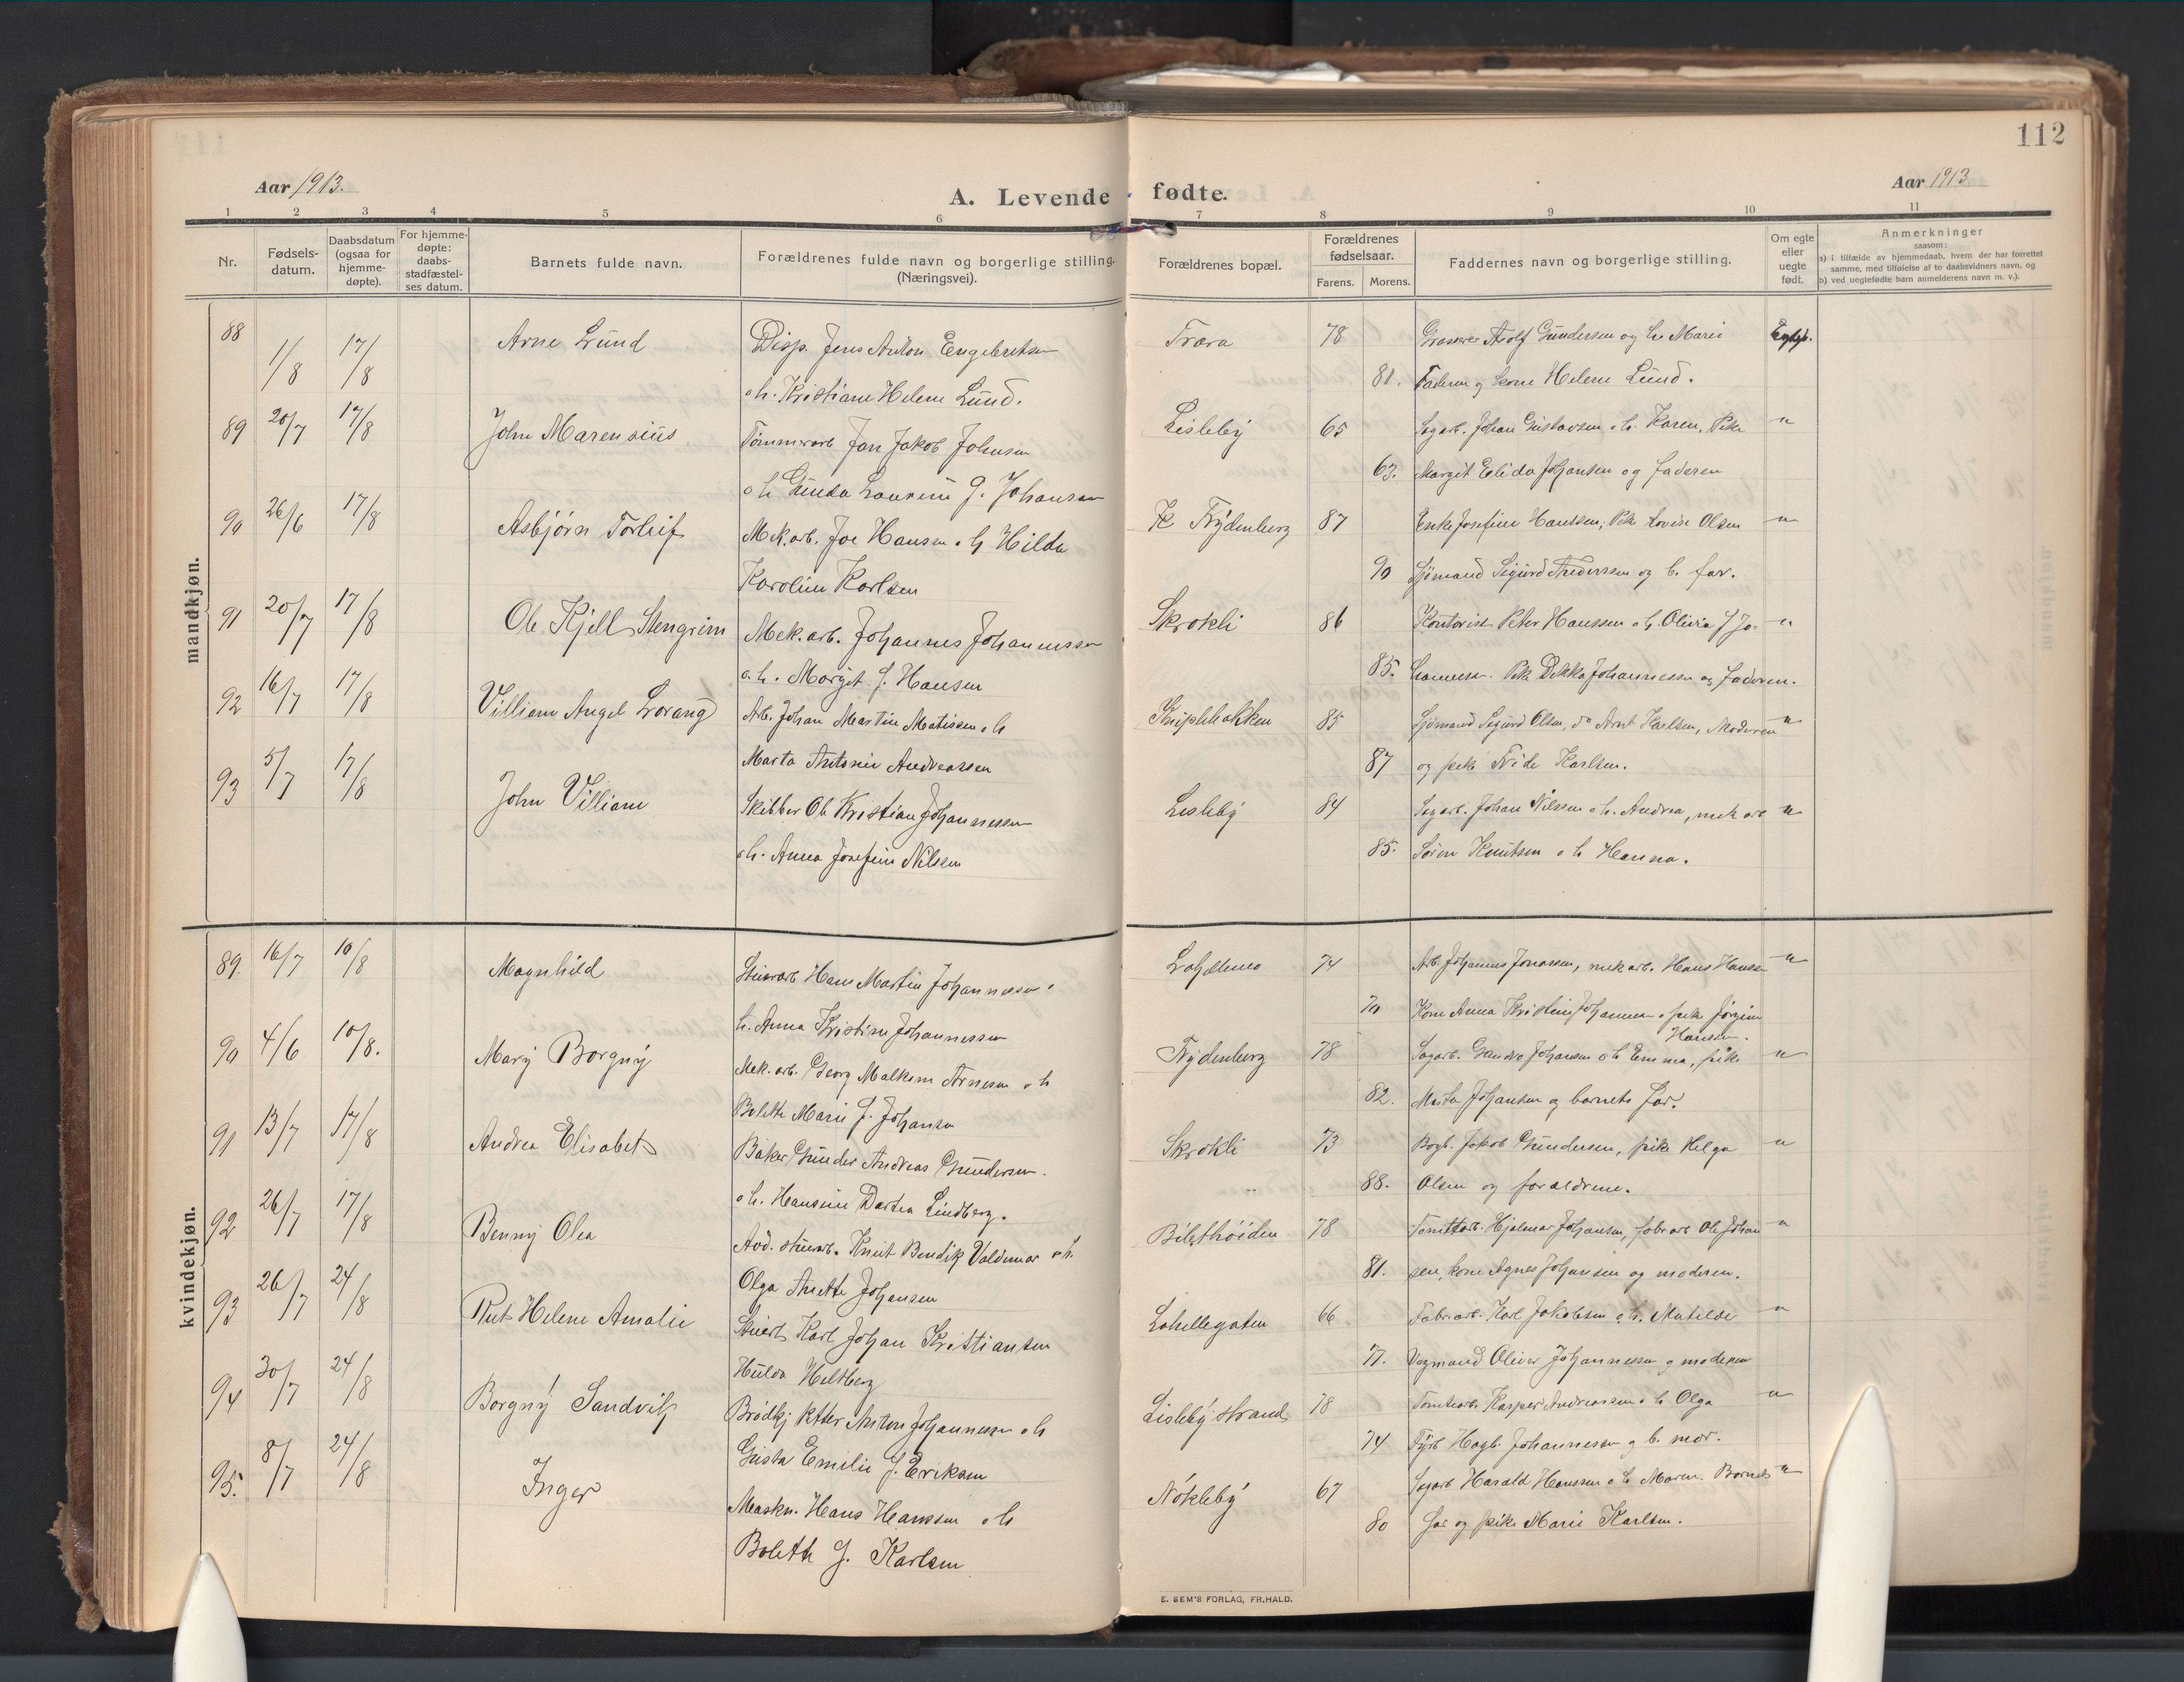 112
Aar 1913.
A. Levende fødte.
Aar 1913
1 2 3 4 5 6 7 8 9 10 11
Nr.
Fødsels-
datum.
Daabsdatum
(ogsaa for
hjemme-
døpte).
For hjemme-
døpte:
daabs-
stadfæstel-
ses datum.
Barnets fulde navn.
Forældrenes fulde navn og borgerlige stilling.
(Næringsvei).
Forældrenes bopæl.
Forældrenes
fødselsaar.
Farens. Morens.
Faddernes navn og borgerlige stilling.
Om egte
eller
uegte
født.
Anmerkninger
saasom:
a) i tilfælde av hjemmedaab, hvem der har forrettet
samme, med tilføielse af to daabsvidners navn, og
b) ved uegtefødte barn anmelderens navn m. v.).
mandkjøn.
88 1/8 17/8 Arne Lund Disp. Jens Anton Engebretsen Træra 78 Adolf Gundersen og h. Marie
o h. Kristiane Helene Lund. 81. Faderen og kone Helene Lund.
89 20/7 17/8 John Marensius Tømmerarb Jan Jakob Johnsen Lisleby 65 Sagarb. Johan Gustavsen o h. Karen, Pike "
o h Gunda Laurense J. Johansen 63. Margit Elida Johansen og faderen
90 26/6 17/8 Asbjørn Torleif Mek. arb. Joe Hansen o h Hilda K Trydenberg 87 Enke Josefine Hanssen, Pike Lovise Olsen "
Karoline Karlsen 90 Sjømand Sigurd Andersen og b. far.
91 20/7 17/8 Ole Kjell Stengrim Mek. arb. Johannes Johannessen Skrokli 86 Kontorist Peter Hanssen o h. Olivia J Jo- "
o. h. Margit J. Hansen 85. hannesen. Pike Dekka Johannessen og faderen.
92 16/7 17/8 Villiam Angel Lorang Arb. Johan Martin Matissen o h Kniplebakken 85 Sjømand Sigurd Olsen, do Arnt Karlsen, Moderen "
Marta Antonie Andreassen 87 og pike Karlsen.
93 5/7 17/8 John Villiam Skibber Ole Kristian Johannessen Lisleby 84 Sagarb. Johan Nilssen o h. Andrea, mek arb "
o h. Anna Josefine Nilsen 85. Søren Knutsen o h Hanna.
kvindekjøn.
89. 16/7 10/8 Magnhild Stuerarb Hans Martin Johannesen o 74 Arb. Johannes Jonassen, mek arb. Hans Hanssen "
h. Anna Kristine Johannessen Kone Anna Kristine Johannsen o pike Jørgine
Hansen.
90 4/6 10/8. Mary Borgny Mek. arb. Georg Malkom Arnesen o h Trydenberg 78 Sagarb. Johansen o h Emma, pike "
Bolette Marie J. Johansen 82. Marta Johansen og barnets far.
91 13/7 17/8 Andrea Elisabet Baker Gunder Andreas Gundersen. Skrokli 73 Bogh. Jakob Gundersen, pike Helga "
o h. Hansine Dartea Lindberg. 88. Olsen og forældrene.
92 26/7 17/8 Benny Olea Avd. stuerarb. Knut Bendik Valdemar o h. 78 Tomtarb. Hjalmar Johansen, fabr arb Ole Johan "
Olga Anette Johansen 81. sen, kone Agnes Johansen og moderen.
93 26/7 24/8 Rut Helene Amalie Stuerb Karl Johan Kristiansen Lahellegaten 66 Fabr arb. Karl Jakobsen o h. Matilde "
Hulda Heltberg 77. Vegmand Oliver Johannessen og moderen
94 30/7 24/8 Borgny Sandvik Brødkj Petter Anton Johannessen o h Lisleby strand 78 Tomtearb. Kasper Andreassen o h Olga "
Gusta Emilie J. Eriksen 74 Fyrb Hagb. Johannessen og b. mor.
95. 8/7 24/8 Inger Maskn. Hans Hanssen o h Nøkleby 67 Sagarb Harald Hanssen o h Maren. Barnets "
Boleth J. Karlsen 80 far og pike Marie Karlsen.
E. SEM'S FORLAG, FR.HALD.